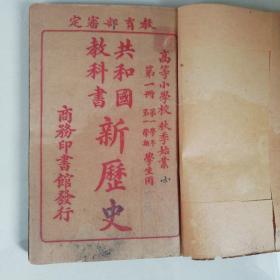 教育部審定
高等小學校 秋季始業
第一冊 第一學年 第一學期 學生用
共和國教科書
新歷史
商務印書館發行